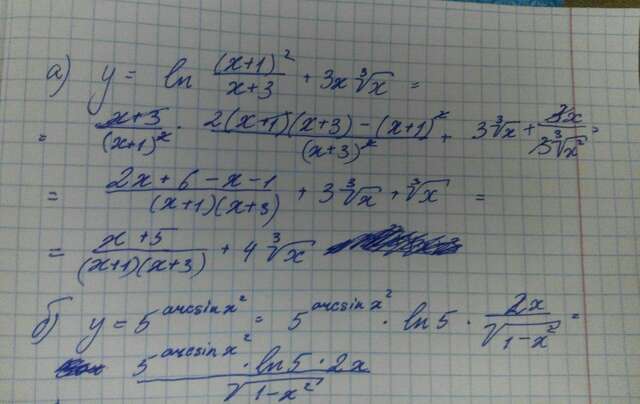 а) y = ln (x+1)²/(x+3) + 3x∛x =
= (x+3)/(x+1)² · (2(x+1)(x+3) − (x+1)²)/(x+3)² + 3∛x + 3x/(3∛x²) =
= (2x + 6 − x − 1)/((x+1)(x+3)) + 3∛x + ∛x =
= (x+5)/((x+1)(x+3)) + 4∛x
б) y = 5^(arcsin x²) = 5^(arcsin x²) · ln 5 · 2x/√(1−x²) =
(5^(arcsin x²) · ln 5 · 2x)/√(1−x²)